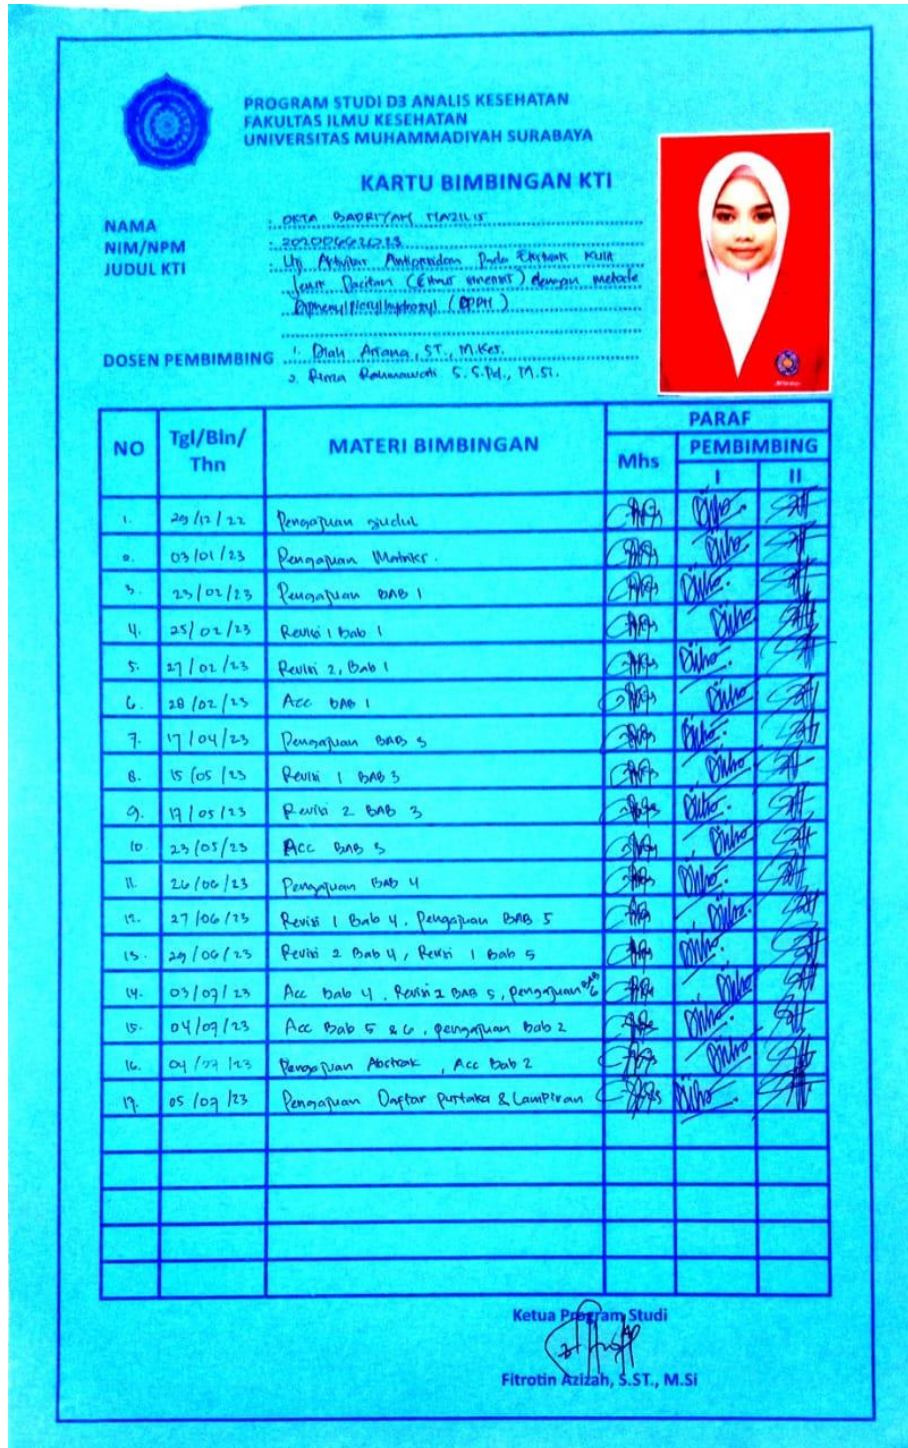 PROGRAM STUDI D3 ANALIS KESEHATAN
FAKULTAS ILMU KESEHATAN
UNIVERSITAS MUHAMMADIYAH SURABAYA
KARTU BIMBINGAN KTI
NAMA : OKTA BADRIYAH MAZILIS
NIM/NPM : 20200662023
JUDUL KTI : Uji Aktivitas Antioksidan Pada Ekstrak Kulit
Jeruk Pacitan (Citrus sinensis) dengan metode
Diphenylpicrylhydrazyl (DPPH)
DOSEN PEMBIMBING 1. Diah Ariana, ST., M.Kes.
2. Rima Rahmawati S. S.Pd., M.Si.
NO Tgl/Bln/Thn MATERI BIMBINGAN PARAF
Mhs PEMBIMBING
I II
1. 29/12/22 Pengajuan judul
2. 03/01/23 Pengajuan Matriks.
3. 23/02/23 Pengajuan BAB 1
4. 25/02/23 Revisi 1 Bab 1
5. 27/02/23 Revisi 2, Bab 1
6. 28/02/23 Acc BAB 1
7. 17/04/23 Pengajuan BAB 3
8. 15/05/23 Revisi 1 BAB 3
9. 17/05/23 Revisi 2 BAB 3
10 23/05/23 ACC BAB 3
11. 26/06/23 Pengajuan BAB 4
12. 27/06/23 Revisi 1 Bab 4, Pengajuan BAB 5
13. 29/06/23 Revisi 2 Bab 4, Revisi 1 Bab 5
14. 03/07/23 Acc Bab 4, Revisi 2 BAB 5, pengajuan BAB 6
15. 04/07/23 Acc Bab 5 & 6, pengajuan Bab 2
16. 04/07/23 Pengajuan Abstrak, Acc Bab 2
17. 05/07/23 Pengajuan Daftar pustaka & Lampiran
Ketua Program Studi
Fitrotin Azizah, S.ST., M.Si